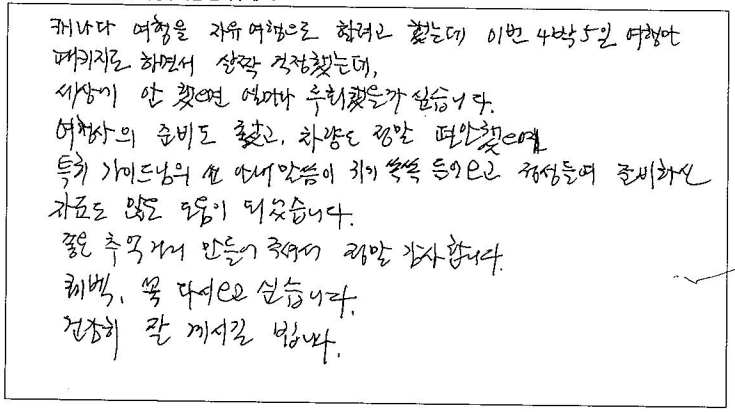 캐나다 여행을 자유여행으로 할려고 했는데 이번 4박5일 여행만
패키지로 하면서 살짝 걱정했는데,
세상에 안 했으면 얼마나 후회했을까 싶습니다.
여행사의 준비도 좋았고, 차량도 정말 편안했으며
특히 가이드님의 안내말씀이 귀에 쏙쏙 들어오고 정성들여 준비하신
자료도 많은 도움이 되었습니다.
좋은 추억거리 만들어 주셔서 정말 감사합니다.
퀘벡, 꼭 다시오고 싶습니다.
건강히 잘 계시길 빕니다.